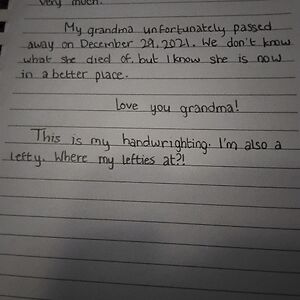 very much.
My grandma unfortunately passed
away on December 29, 2021. We don't know
what she died of, but I know she is now
in a better place.
love you grandma!
This is my handwrighting. I'm also a
lefty. Where my lefties at?!